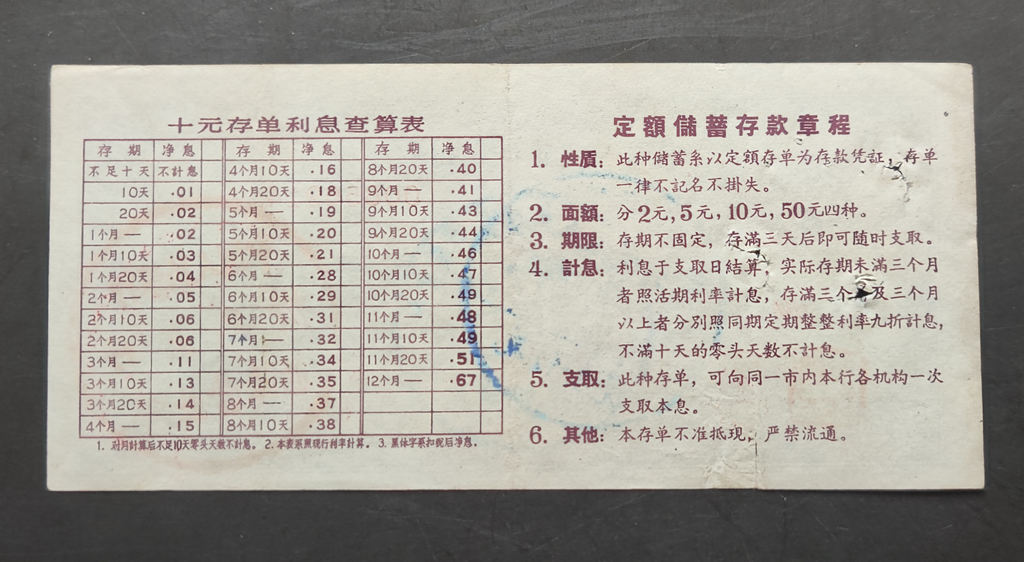 十元存单利息查算表
存期 净息 存期 净息 存期 净息
不足十天 不計息 4个月10天 .16 8个月20天 .40
10天 .01 4个月20天 .18 9个月— .41
20天 .02 5个月— .19 9个月10天 .43
1个月— .02 5个月10天 .20 9个月20天 .44
1个月10天 .03 5个月20天 .21 10个月— .46
1个月20天 .04 6个月— .28 10个月10天 .47
2个月— .05 6个月10天 .29 10个月20天 .49
2个月10天 .06 6个月20天 .31 11个月— .48
2个月20天 .06 7个月— .32 11个月10天 .49
3个月— .11 7个月10天 .34 11个月20天 .51
3个月10天 .13 7个月20天 .35 12个月— .67
3个月20天 .14 8个月— .37
4个月— .15 8个月10天 .38
1. 对月計算后不足10天零头天数不計息。 2. 本表系照現行利率計算。 3. 黑体字系扣税后净息。
定額儲蓄存款章程
1. 性質：此种儲蓄系以定額存单为存款凭証，存单
一律不記名不掛失。
2. 面額：分2元，5元，10元，50元四种。
3. 期限：存期不固定，存滿三天后即可随时支取。
4. 計息：利息于支取日結算，实际存期未滿三个月
者照活期利率計息，存滿三个月及三个月
以上者分别照同期定期整整利率九折計息，
不滿十天的零头天数不計息。
5. 支取：此种存单，可向同一市内本行各机构一次
支取本息。
6. 其他：本存单不准抵現，严禁流通。